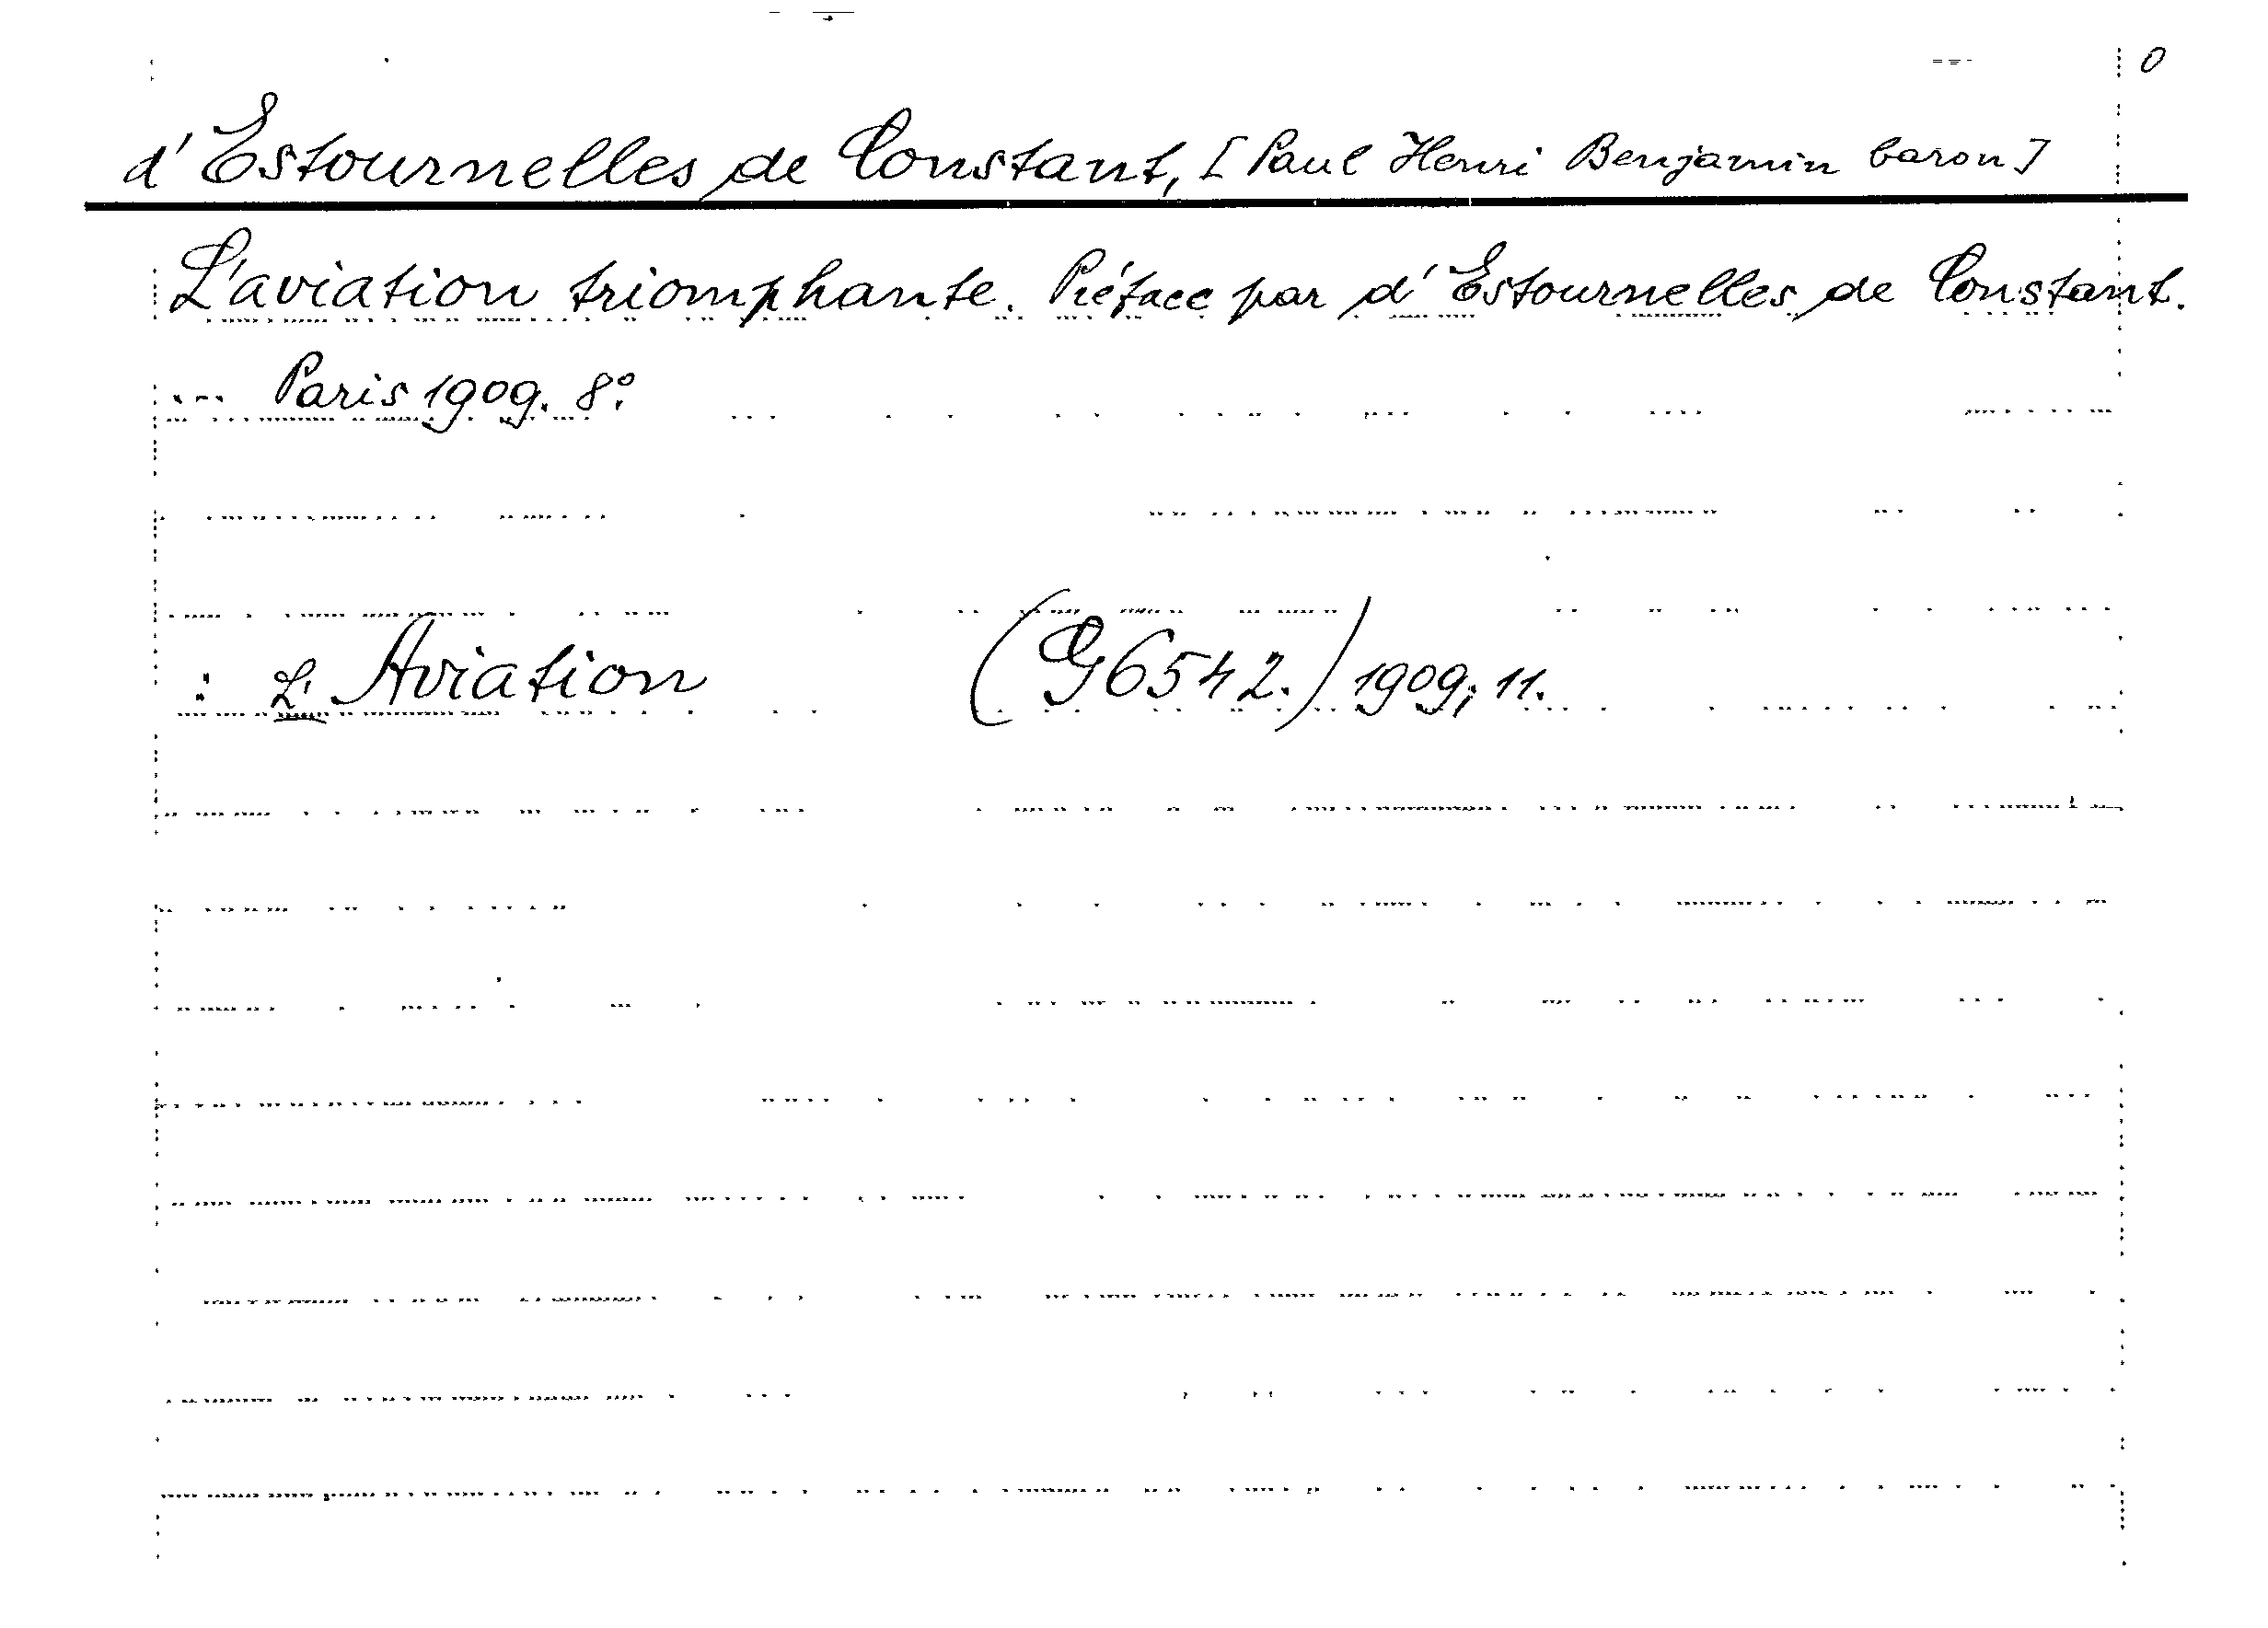 0
d'Estournelles de Constant, [Paul Henri Benjamin baron]
L'aviation triomphante. Préface par d'Estournelles de Constant.
--- Paris 1909. 8°.
: L'Aviation (G6542.) 1909; 11.